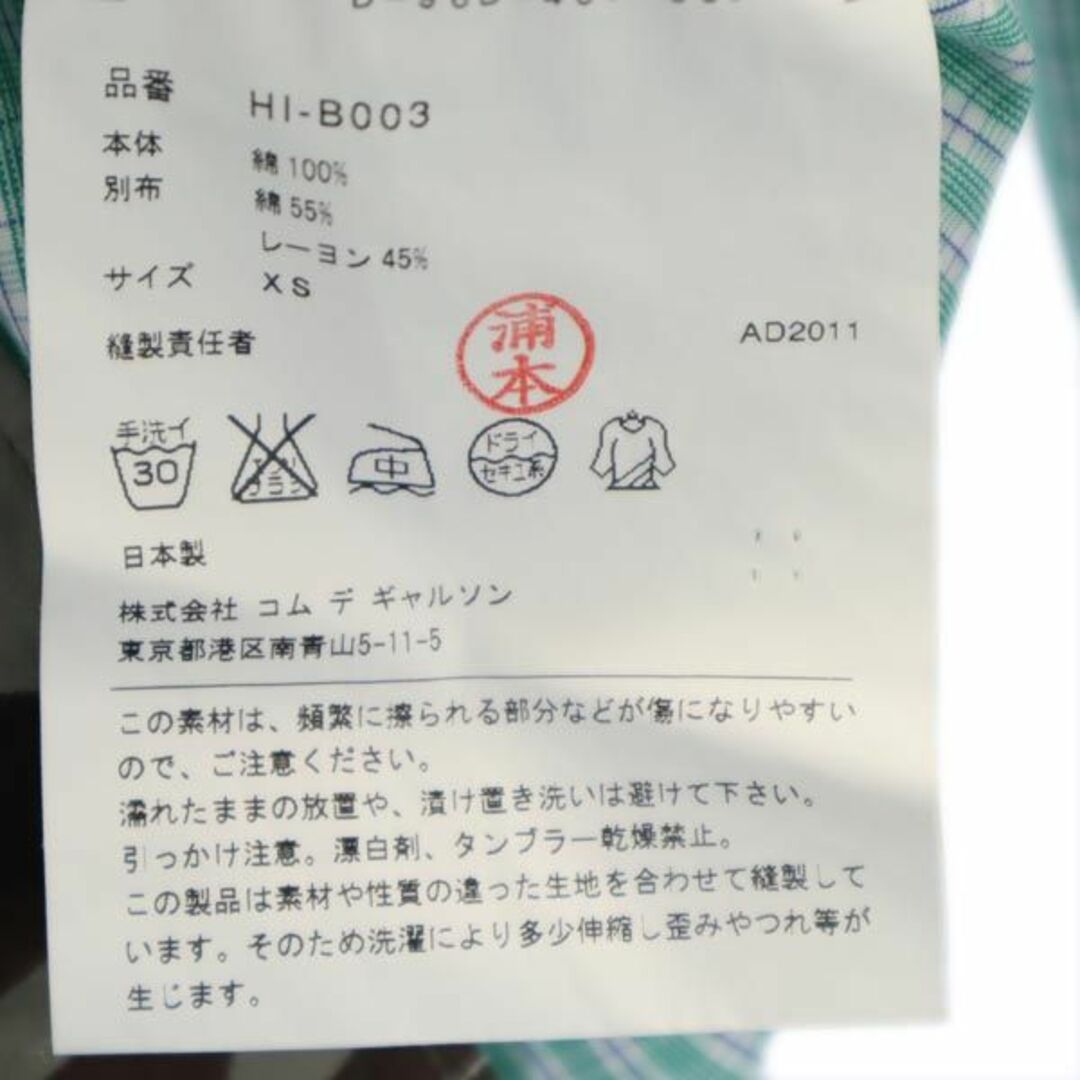 品番 HI-B003
本体 綿 100%
別布 綿 55%
レーヨン 45%
サイズ XS
縫製責任者 浦本 AD2011
手洗イ 30
エンソ サラシ
中
ドライ セキユ系
日本製
株式会社 コム デ ギャルソン
東京都港区南青山5-11-5
この素材は、頻繁に擦られる部分などが傷になりやすい
ので、ご注意ください。
濡れたままの放置や、漬け置き洗いは避けて下さい。
引っかけ注意。漂白剤、タンブラー乾燥禁止。
この製品は素材や性質の違った生地を合わせて縫製して
います。そのため洗濯により多少伸縮し歪みやつれ等が
生じます。